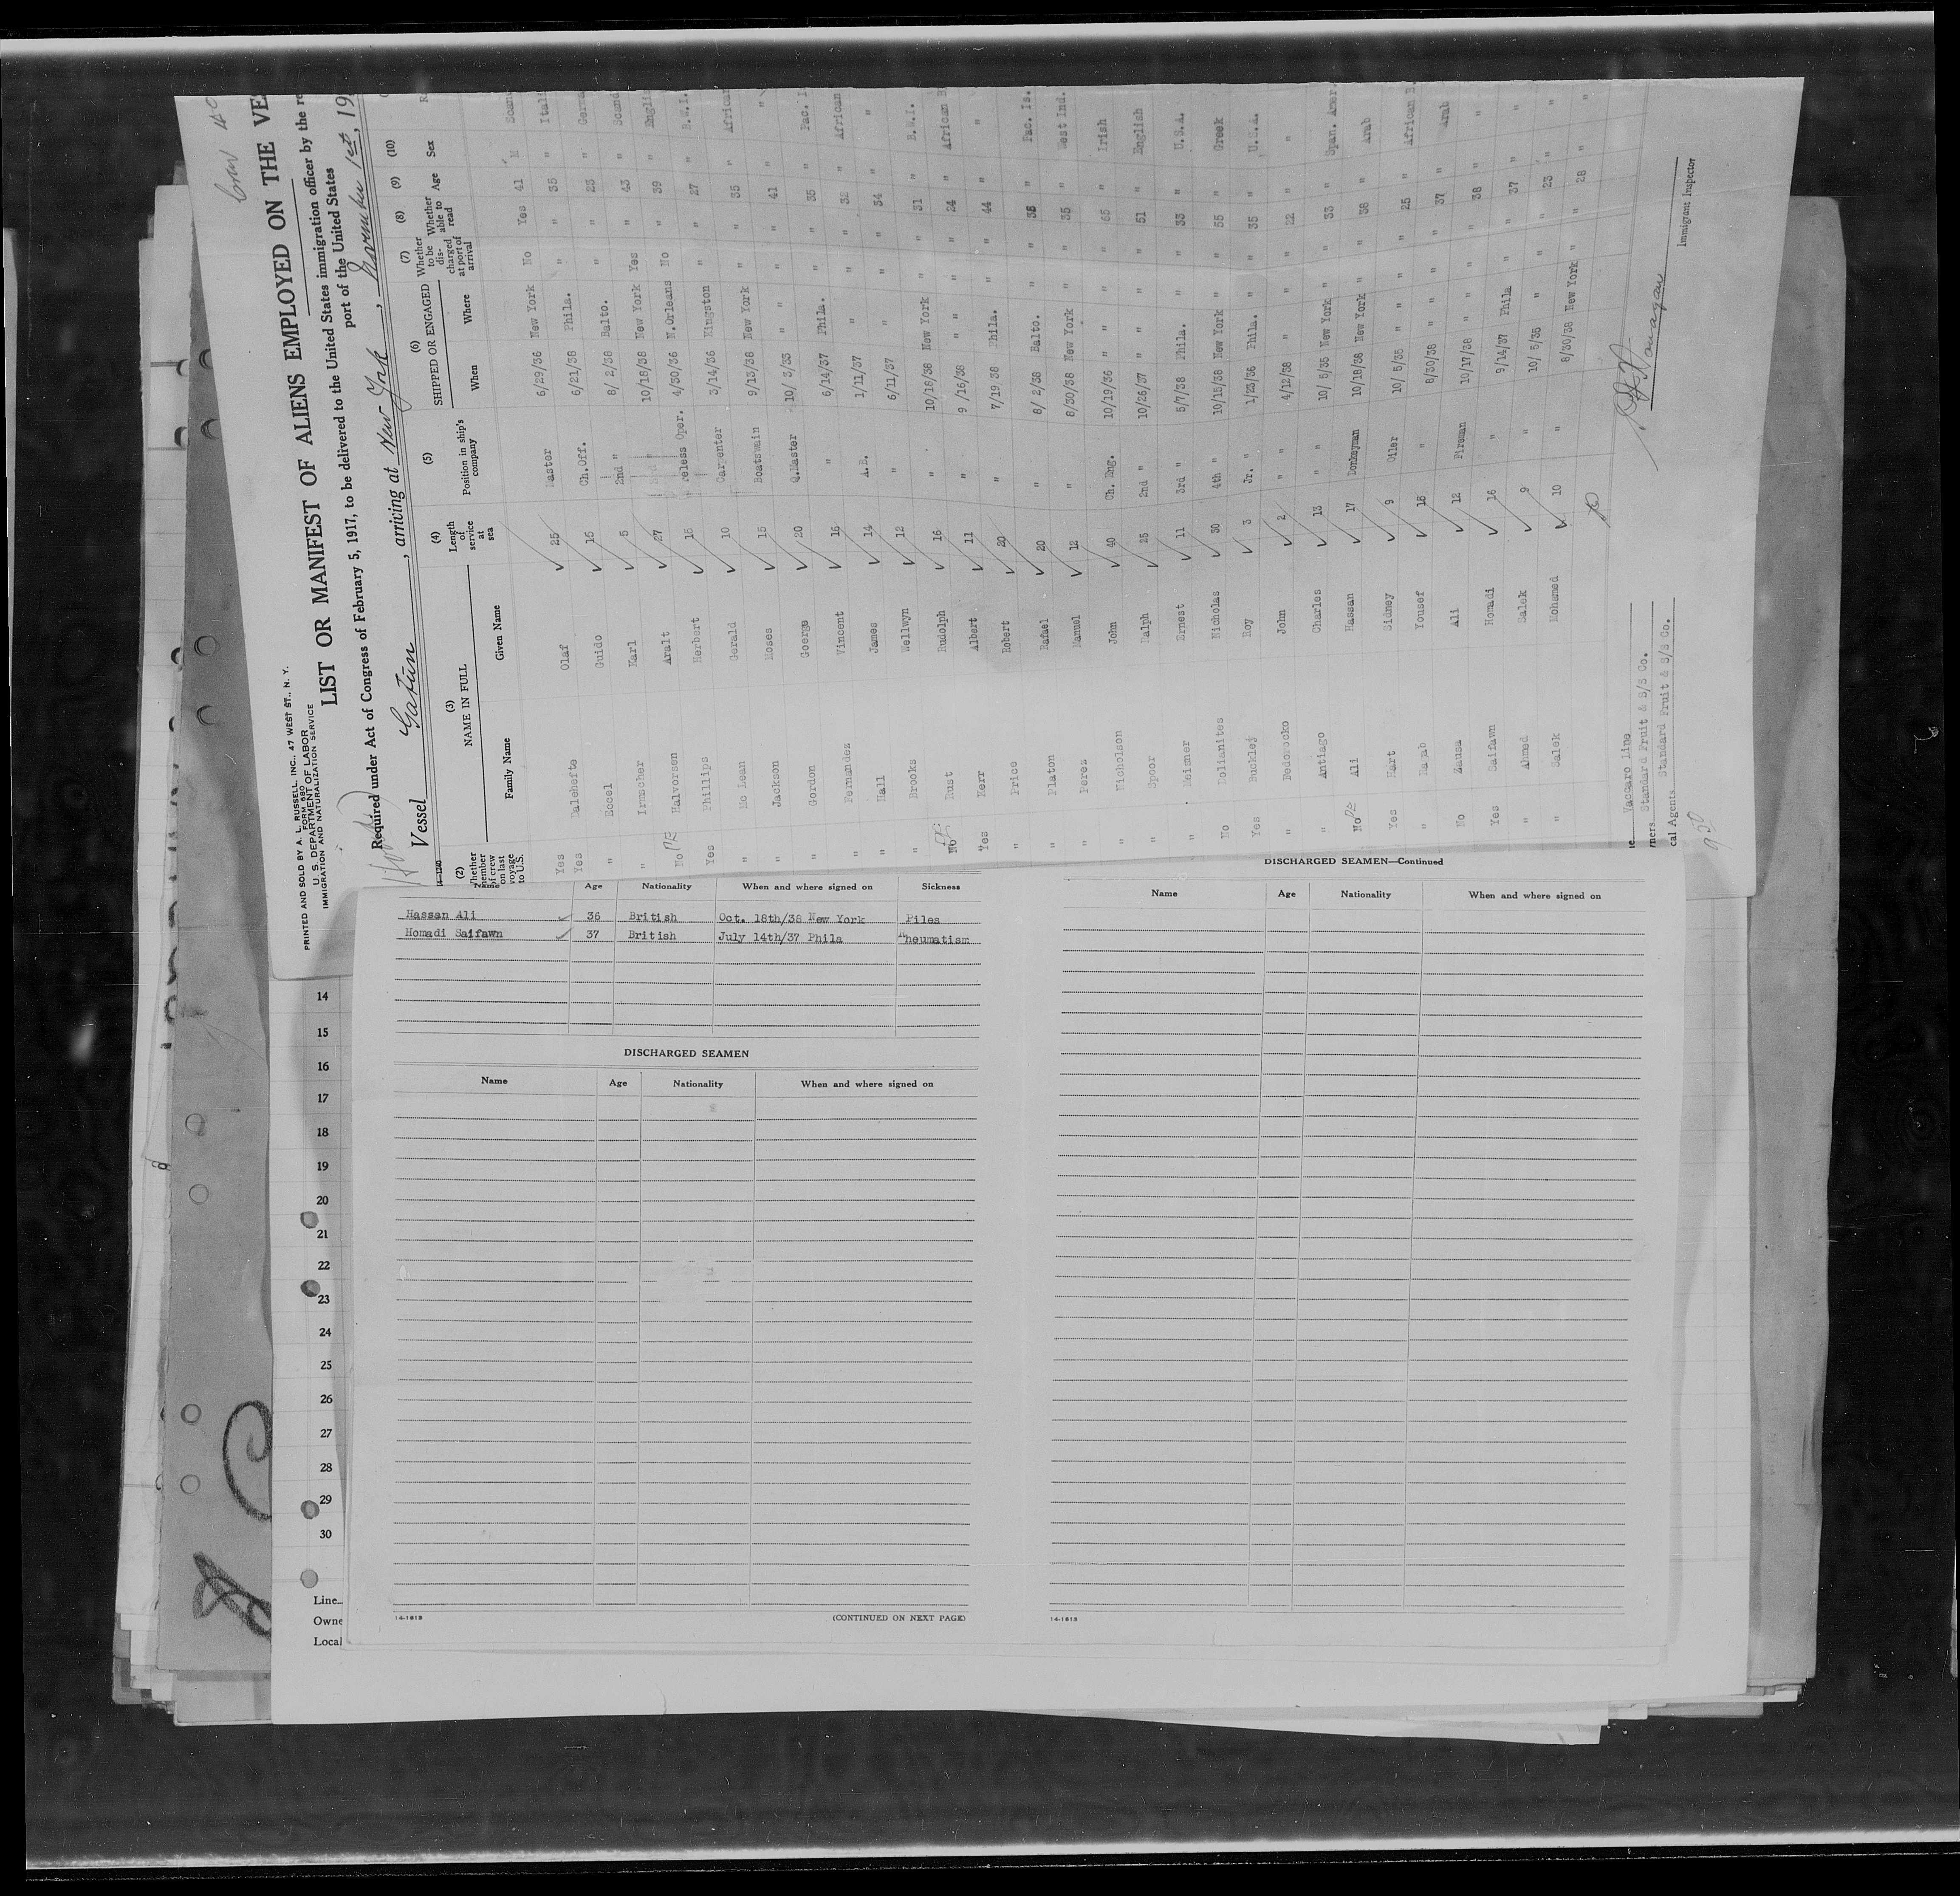 Crew
PRINTED AND SOLD BY A. L. RUSSELL, INC., 47 WEST ST., N. Y.
FORM 680
U. S. DEPARTMENT OF LABOR
IMMIGRATION AND NATURALIZATION SERVICE
LIST OR MANIFEST OF ALIENS EMPLOYED ON THE VE
Required under Act of Congress of February 5, 1917, to be delivered to the United States immigration officer by the re
port of the United States
Vessel Gatun , arriving at New York , November 1st, 19
(2) (3) NAME IN FULL (4) (5) (6) SHIPPED OR ENGAGED (7) (8) (9) (10)
Whether member of crew on last voyage to U.S. Family Name Given Name Length of service at sea Position in ship's company When Where Whether to be discharged at port of arrival Whether able to read Age Sex
Yes Dalehefte Olaf 25 Master 6/29/36 New York No Yes 41 M Scand
Yes Eccel Guido 15 Ch.Off. 6/21/38 Phila. " " 35 " Itali
" Irmscher Karl 5 2nd " 8/ 2/38 Balto. " " 23 " Germa
" Halvorsen Aralt 27 10/18/38 New York Yes " 43 " Scand
No Phillips Herbert 15 reless Oper. 4/30/36 N.Orleans No " 39 " Englis
Yes Mc Lean Gerald 10 Carpenter 3/14/36 Kingston " " 27 " B.W.I.
" Jackson Moses 15 Boatswain 9/13/38 New York " " 35 " African
" Gordon Goerge 20 Q.Master 10/ 3/33 " " " " 41 " "
" Fernandez Vincent 16 " 6/14/37 Phila. " " 35 " Pac. I
" Hall James 14 A.B. 1/11/37 " " " 32 " African
" Brooks Wellwyn 12 " 6/11/37 " " " 34 " "
" Rust Rudolph 16 " 10/18/38 New York " " 31 " B.W.I.
No Kerr Albert 11 " 9 /16/38 " " " " 24 " African B
Yes Price Robert 20 " 7/19 38 Phila. " " 44 " "
" Platon Rafael 20 " 8/ 2/38 Balto. " " 35 " Pac. Is.
" Perez Manuel 12 " 8/30/38 New York " " 35 " West Ind.
" Nicholson John 40 Ch. Eng. 10/19/36 " " " " 65 " Irish
" Spoor Ralph 25 2nd " 10/26/37 " " " " 51 " English
" Ernest 11 3rd " 5/7/38 Phila. " " 33 " U.S.A.
No Nicholas 30 4th " 10/15/38 New York " " 55 " Greek
Yes Buckley Roy 3 Jr. " 1/23/36 Phila. " " 35 " U.S.A.
" John 2 " " 4/12/38 " " " 22 " "
" Antiago Charles 13 " " 10/ 5/35 New York " " 33 " Span. Amer.
No Ali Hassan 17 Donkeyman 10/18/38 New York " " 38 " Arab
Yes Hart Sidney 9 Oiler 10/ 5/35 " " " " 25 " African B.
" Yousef 15 " 8/30/38 " " " " 37 " Arab
No Zausa Ali 12 Fireman 10/17/38 " " " " 38 " "
Yes Saifawn Homadi 16 " 9/14/37 Phila " " 37 " "
" Ahmed Salek 9 " 10/ 5/35 " " " 23 " "
" Salek Mohamed 10 " 8/30/38 New York " " 28 " "
Vaccaro Line
Standard Fruit & S/S Co.
cal Agents Standard Fruit & S/S Co.
Immigrant Inspector
Age Nationality When and where signed on Sickness
Hassan Ali 36 British Oct. 18th/38 New York Piles
Homadi Saifawn 37 British July 14th/37 Phila Rheumatism
DISCHARGED SEAMEN
Name Age Nationality When and where signed on
14-1813
(CONTINUED ON NEXT PAGE)
DISCHARGED SEAMEN—Continued
Name Age Nationality When and where signed on
14-1813
14
15
16
17
18
19
20
21
22
23
24
25
26
27
28
29
30
Line
Owne
Local